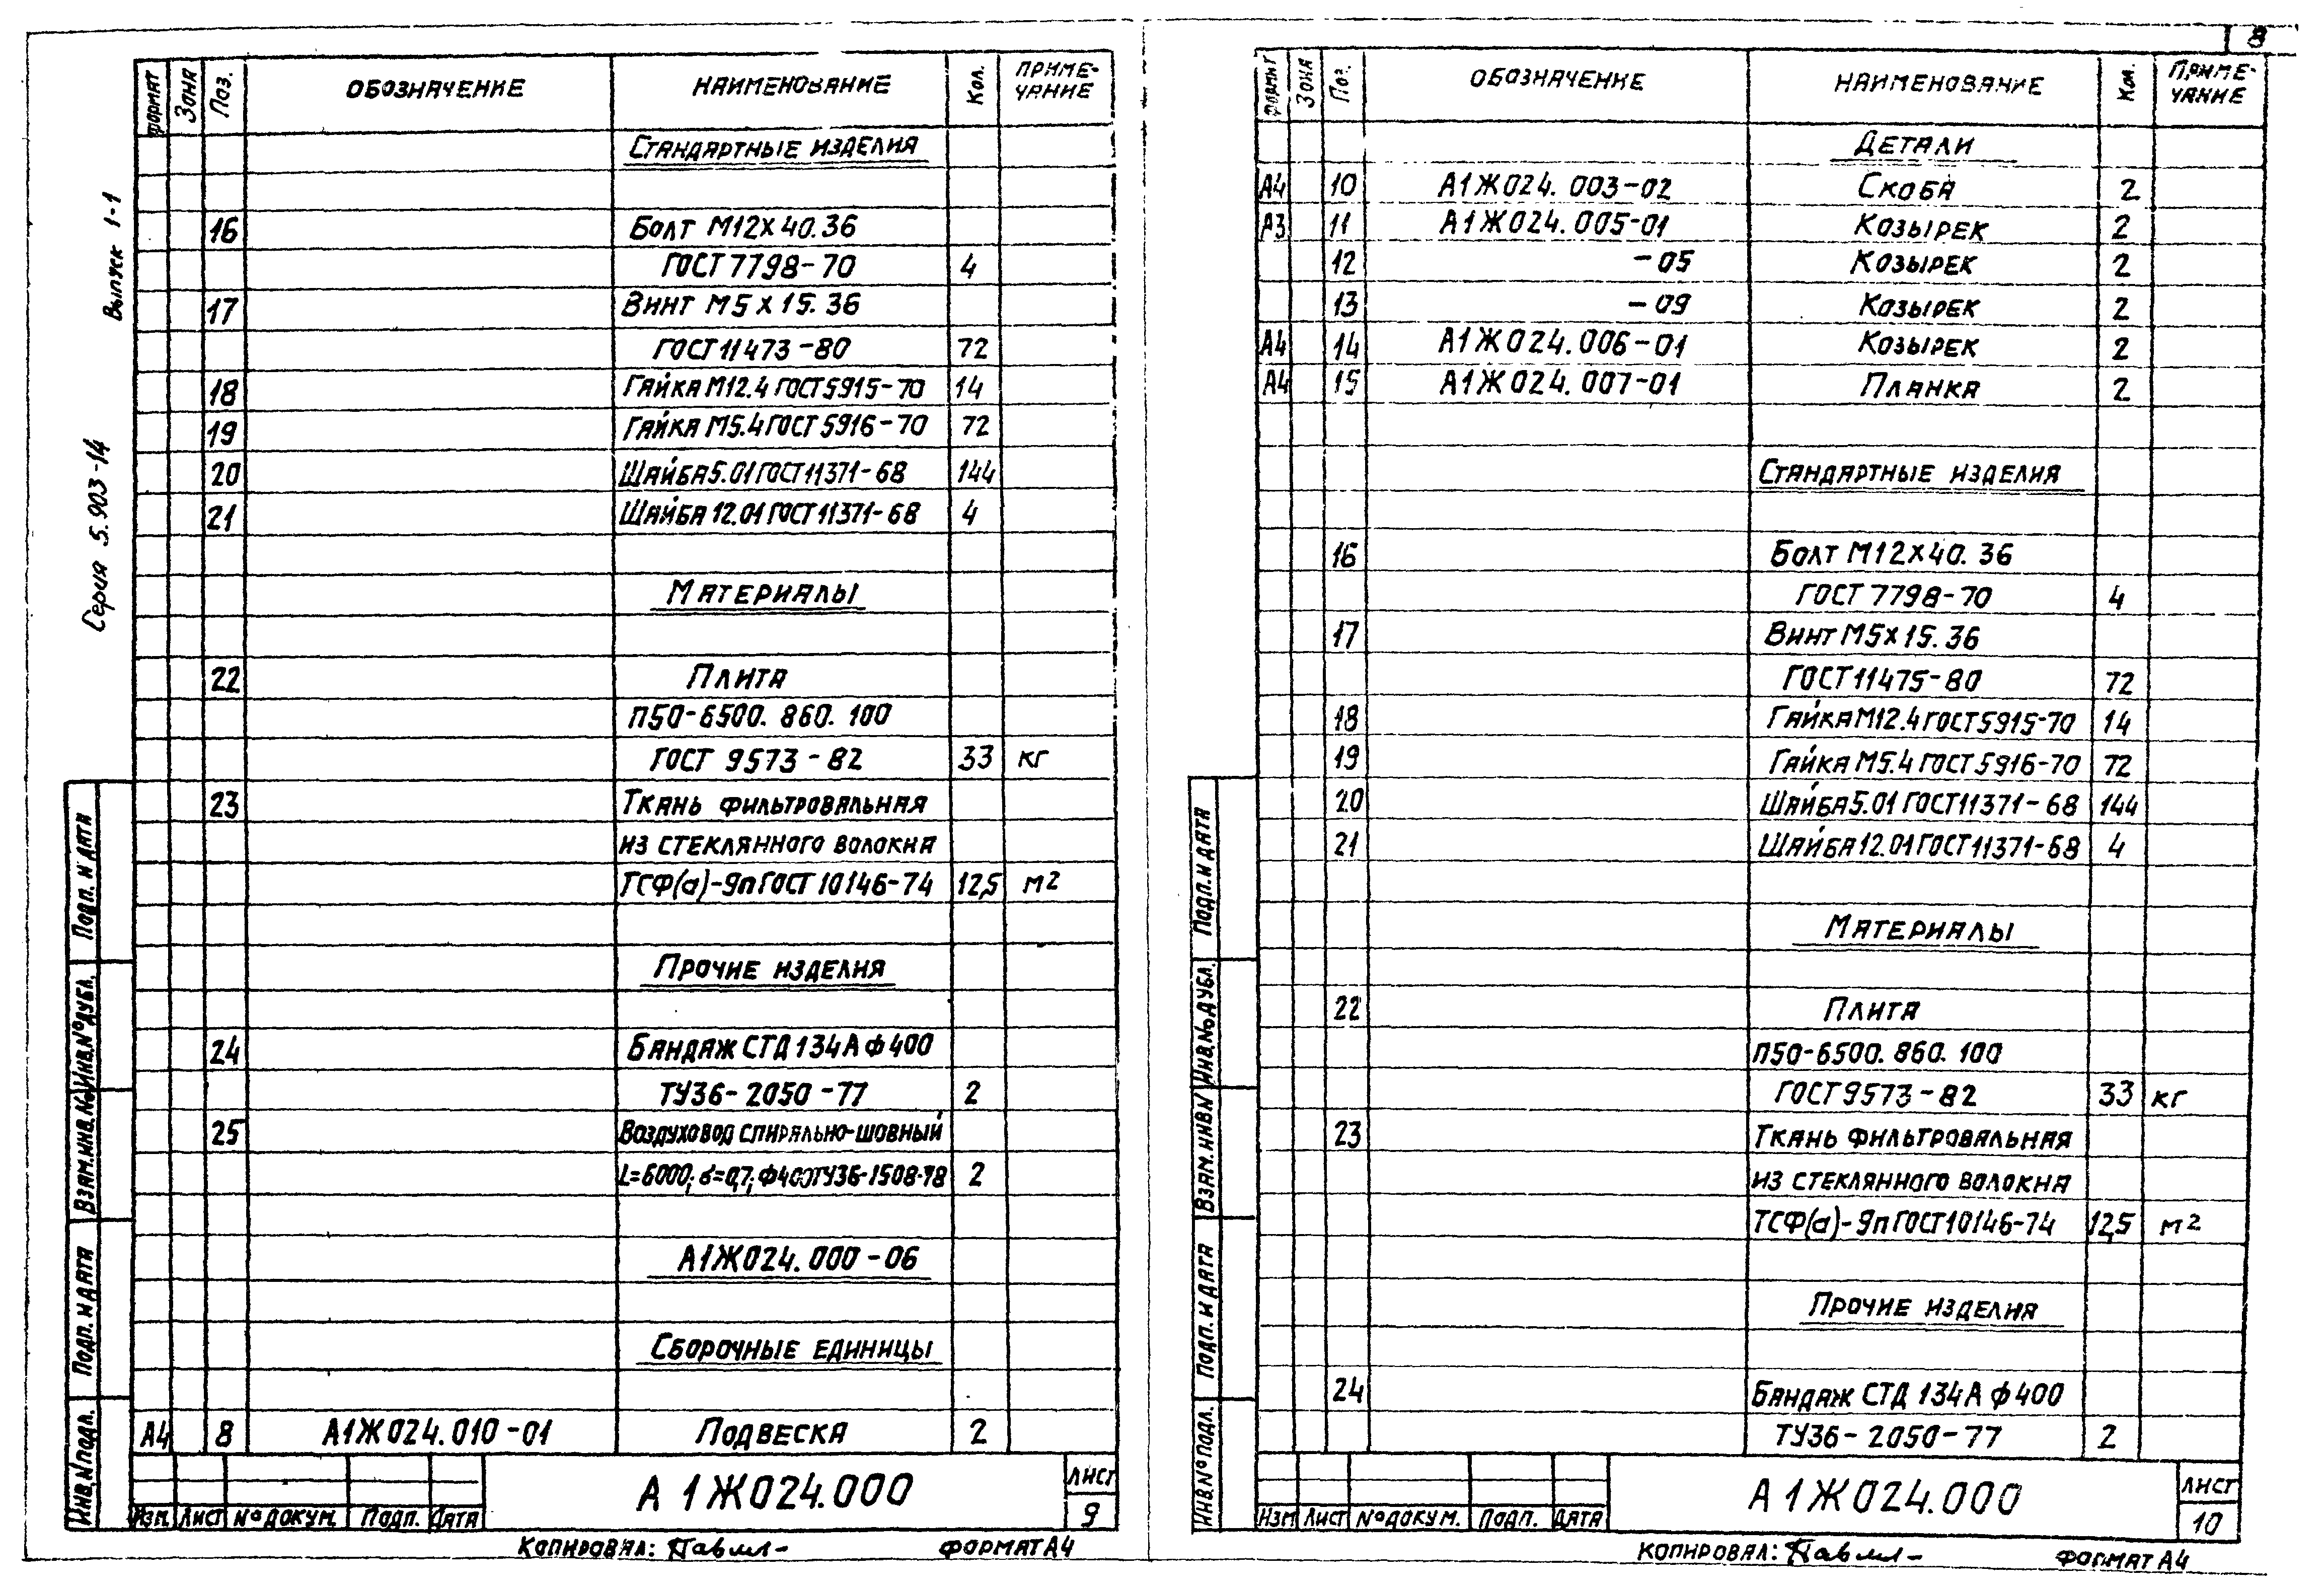 8
Серия 5.903-14 Выпуск 1-1
ФОРМАТ ЗОНА Поз. ОБОЗНАЧЕНИЕ НАИМЕНОВАНИЕ Кол. ПРИМЕ-
ЧАНИЕ
СТАНДАРТНЫЕ ИЗДЕЛИЯ
16 БОЛТ М12Х40.36
ГОСТ 7798-70 4
17 ВИНТ М5Х15.36
ГОСТ 11473-80 72
18 ГАЙКА М12.4 ГОСТ 5915-70 14
19 ГАЙКА М5.4 ГОСТ 5916-70 72
20 ШАЙБА 5.01 ГОСТ 11371-68 144
21 ШАЙБА 12.01 ГОСТ 11371-68 4
МАТЕРИАЛЫ
22 ПЛИТА
П50-6500.860.100
ГОСТ 9573-82 33 кг
23 ТКАНЬ ФИЛЬТРОВАЛЬНАЯ
ИЗ СТЕКЛЯННОГО ВОЛОКНА
ТСФ(а)-9п ГОСТ 10146-74 12,5 м2
ПРОЧИЕ ИЗДЕЛИЯ
24 БАНДАЖ СТД 134А Ф400
ТУ36-2050-77 2
25 ВОЗДУХОВОД СПИРАЛЬНО-ШОВНЫЙ
L=6000; σ=0,7; Ф400ТУ36-1508-78 2
А1Ж024.000-06
СБОРОЧНЫЕ ЕДИНИЦЫ
А4 8 А1Ж024.010-01 ПОДВЕСКА 2
ИНВ.№ПОДЛ. ПОДП. И ДАТА ВЗАМ.ИНВ.№ ИНВ.№ДУБЛ. ПОДП. И ДАТА
ИЗМ. ЛИСТ №ДОКУМ. ПОДП. ДАТА
А1Ж024.000
ЛИСТ
9
КОПИРОВАЛ: ФОРМАТ А4
ФОРМАТ ЗОНА Поз. ОБОЗНАЧЕНИЕ НАИМЕНОВАНИЕ Кол. ПРИМЕ-
ЧАНИЕ
ДЕТАЛИ
А4 10 А1Ж024.003-02 СКОБА 2
А3 11 А1Ж024.005-01 КОЗЫРЕК 2
12 -05 КОЗЫРЕК 2
13 -09 КОЗЫРЕК 2
А4 14 А1Ж024.006-01 КОЗЫРЕК 2
А4 15 А1Ж024.007-01 ПЛАНКА 2
СТАНДАРТНЫЕ ИЗДЕЛИЯ
16 БОЛТ М12Х40.36
ГОСТ 7798-70 4
17 ВИНТ М5Х15.36
ГОСТ 11475-80 72
18 ГАЙКА М12.4 ГОСТ 5915-70 14
19 ГАЙКА М5.4 ГОСТ 5916-70 72
20 ШАЙБА 5.01 ГОСТ 11371-68 144
21 ШАЙБА 12.01 ГОСТ 11371-68 4
МАТЕРИАЛЫ
22 ПЛИТА
П50-6500.860.100
ГОСТ 9573-82 33 кг
23 ТКАНЬ ФИЛЬТРОВАЛЬНАЯ
ИЗ СТЕКЛЯННОГО ВОЛОКНА
ТСФ(а)-9п ГОСТ 10146-74 12,5 м2
ПРОЧИЕ ИЗДЕЛИЯ
24 БАНДАЖ СТД 134А Ф400
ТУ36-2050-77 2
ИНВ.№ПОДЛ. ПОДП. И ДАТА ВЗАМ.ИНВ.№ ИНВ.№ДУБЛ. ПОДП. И ДАТА
ИЗМ ЛИСТ №ДОКУМ. ПОДП. ДАТА
А1Ж024.000
ЛИСТ
10
КОПИРОВАЛ: ФОРМАТ А4